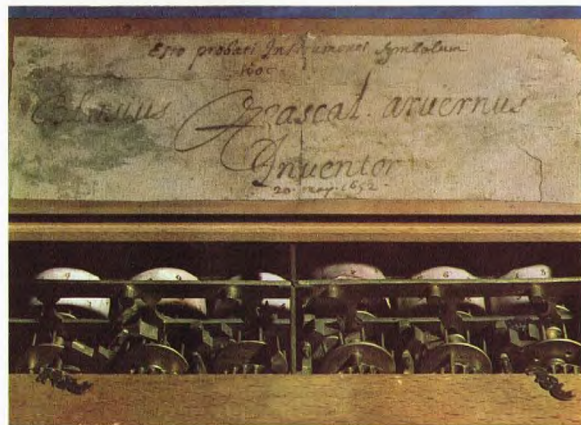 Esto probati Instrumenti Symbolum
hoc
Blasius Pascal. arvernus
Inventor
20. may. 1652.